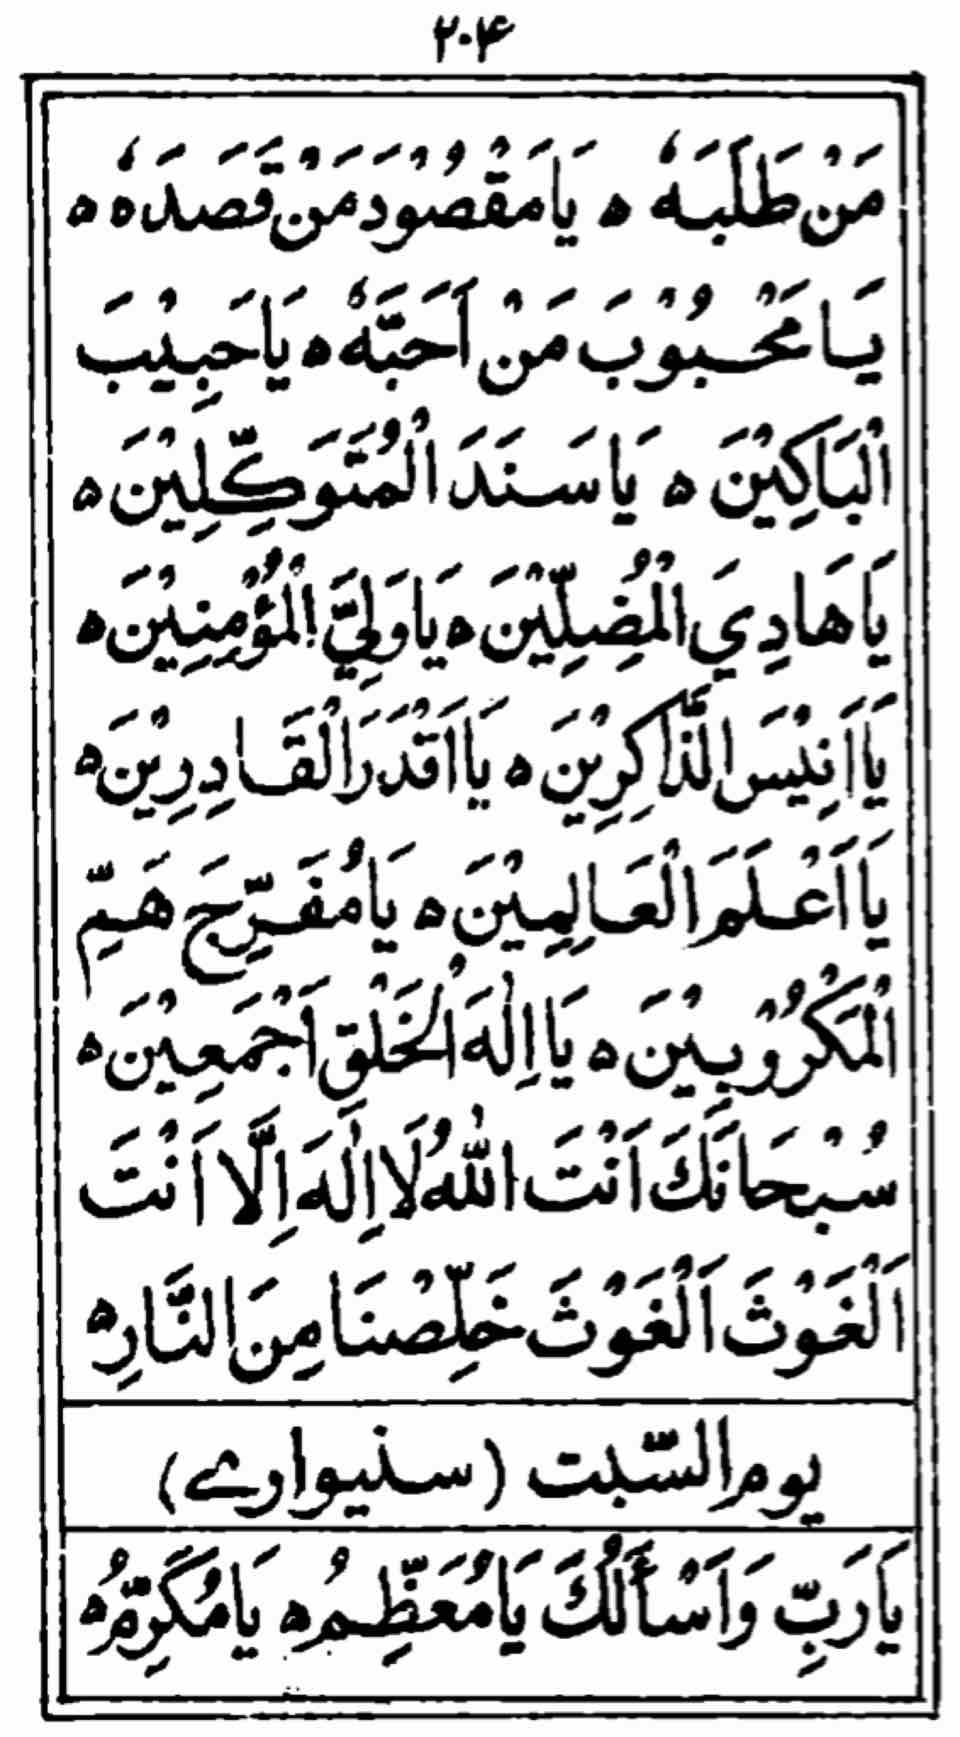 ۲۰۴
مَنْ طَلَبَهٗ ه يَا مَقْصُوْدَ مَنْ قَصَدَهٗ ه
يَا مَحْبُوْبَ مَنْ اَحَبَّهٗ ه يَا حَبِيْبَ
الْبَاكِيْنَ ه يَا سَنَدَ الْمُتَوَكِّلِيْنَ ه
يَا هَادِيَ الْمُضِلِّيْنَ ه يَا وَلِيَّ الْمُؤْمِنِيْنَ ه
يَا اَنِيْسَ الذَّاكِرِيْنَ ه يَا اَقْدَرَ الْقَادِرِيْنَ ه
يَا اَعْلَمَ الْعَالِمِيْنَ ه يَا مُفَرِّجَ هَمِّ
الْمَكْرُوْبِيْنَ ه يَا اِلٰهَ الْخَلْقِ اَجْمَعِيْنَ ه
سُبْحَانَكَ اَنْتَ اللّٰهُ لَا اِلٰهَ اِلَّا اَنْتَ
اَلْغَوْثَ اَلْغَوْثَ خَلِّصْنَا مِنَ النَّارِ ه
يوم السّبت (سنيوارے)
يَا رَبِّ وَاَسْأَلُكَ يَا مُعَظِّمُ ه يَا مُكَرِّمُ ه